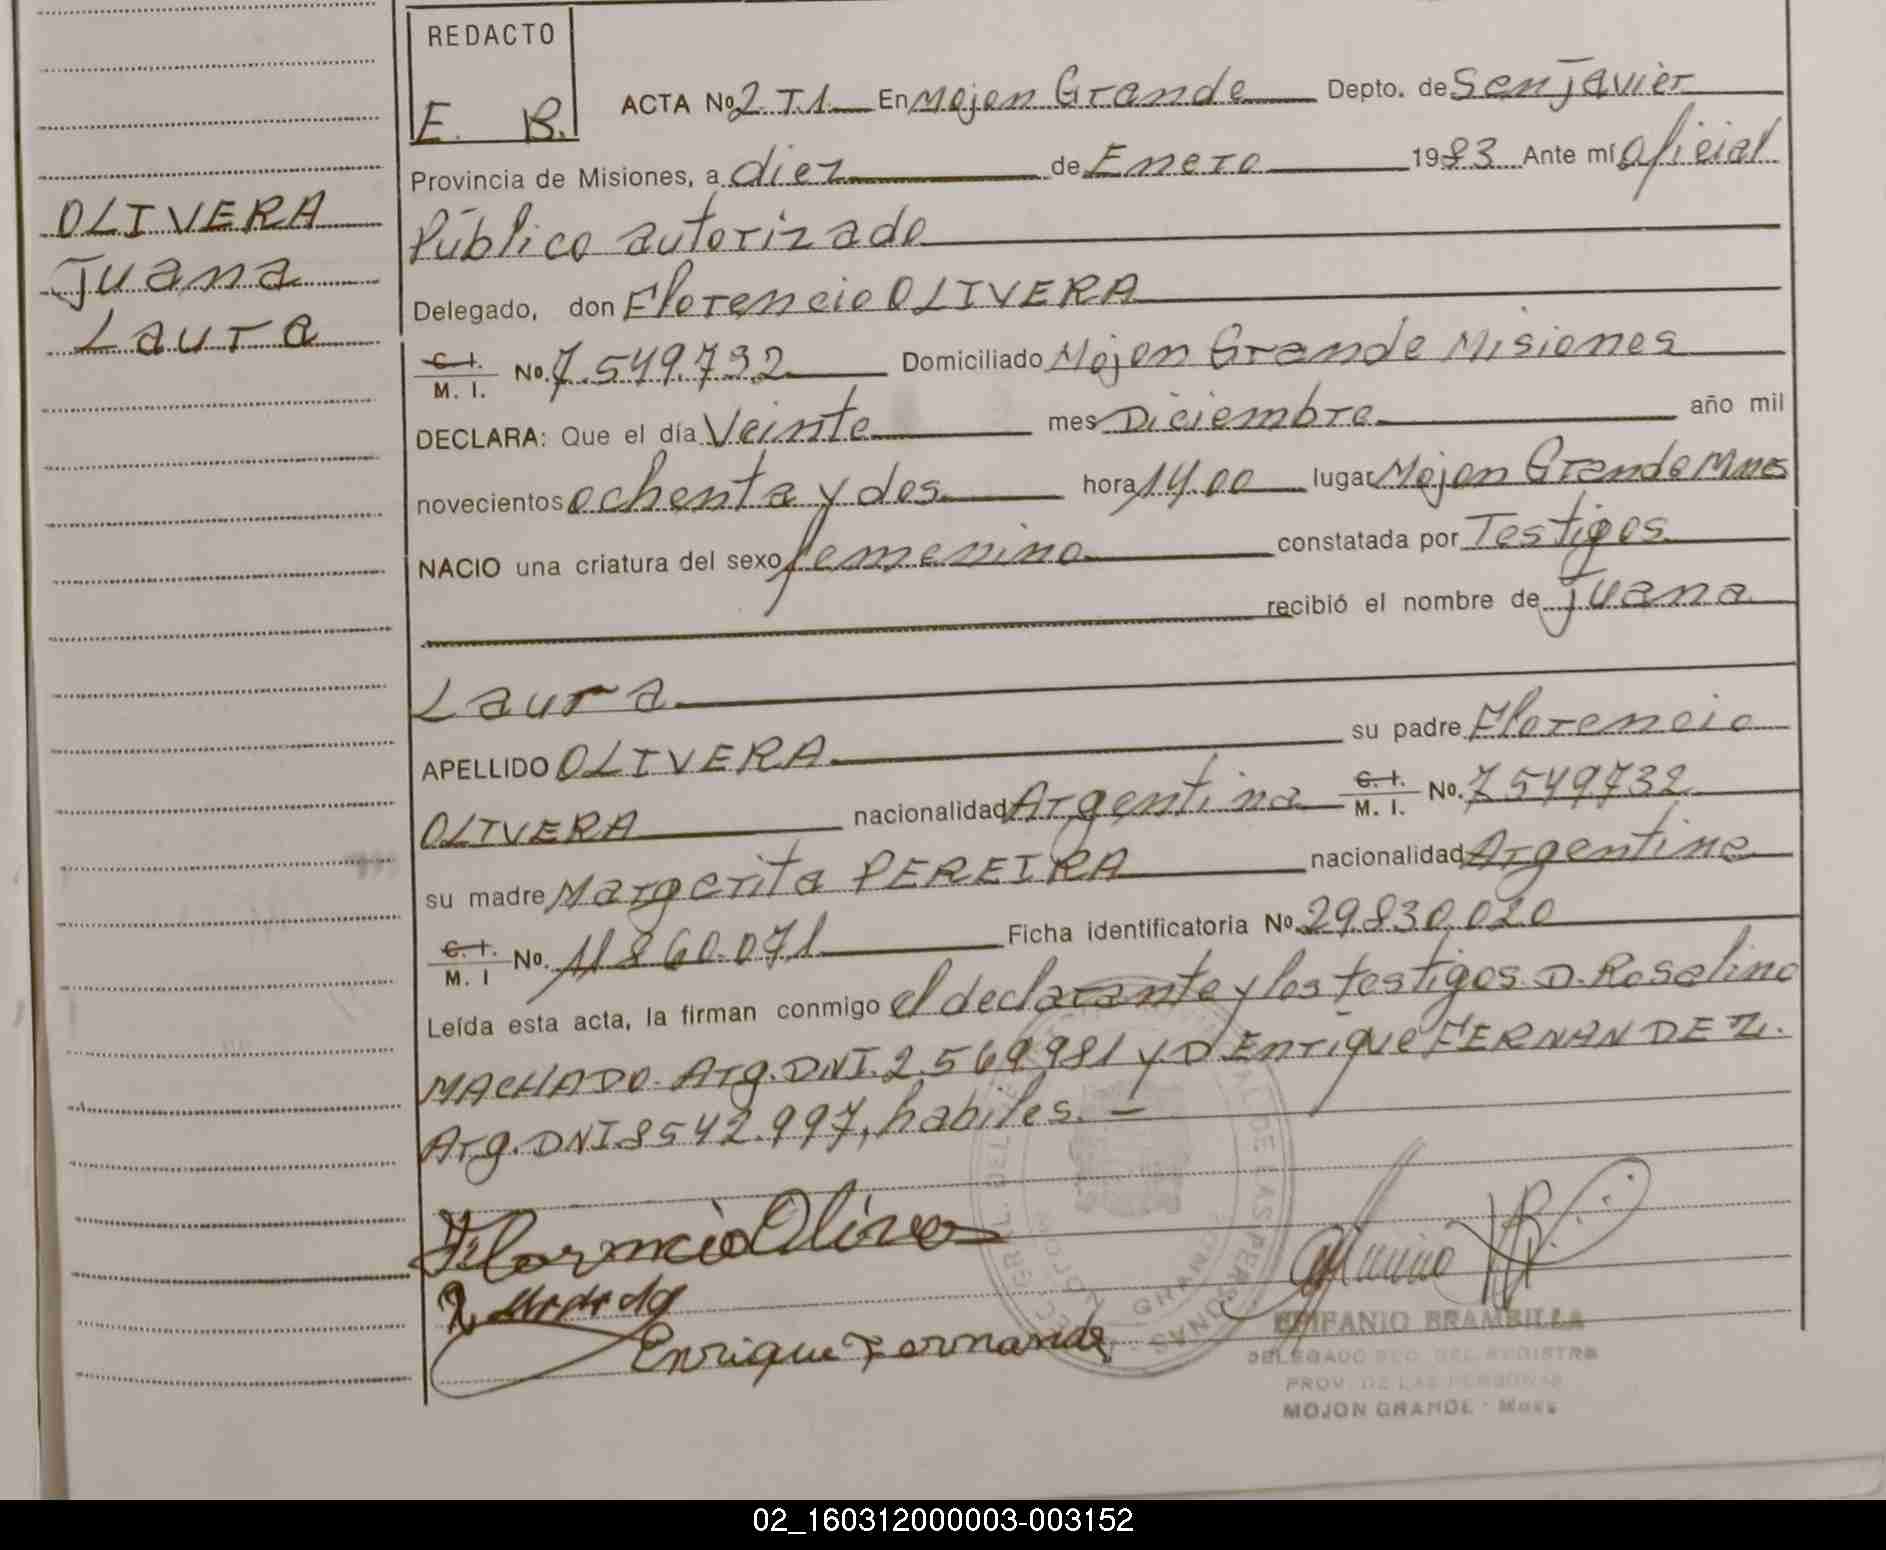 REDACTO
E. B.
ACTA No 2 T.1. En Mojon Grande Depto. de San Javier
Provincia de Misiones, a diez de Enero 1983 Ante mí oficial
Público autorizado
OLIVERA
Juana
Laura
Delegado, don Florencio OLIVERA
C. I. M. I. No. 7.549.732 Domiciliado Mojon Grande Misiones
DECLARA: Que el día Veinte mes Diciembre año mil
novecientos ochenta y dos hora 14.00 lugar Mojon Grande Mnes
NACIO una criatura del sexo femenino constatada por Testigos
recibió el nombre de Juana
Laura
APELLIDO OLIVERA su padre Florencio
OLIVERA nacionalidad Argentina C. I. M. I. No. 7549732
su madre Margarita PEREIRA nacionalidad Argentina
C. I. M. I No. 11860.071 Ficha identificatoria No. 29.830.020
Leída esta acta, la firman conmigo el declarante y los testigos D. Rosalino
MACHADO. Arg. DNI. 2.569.981 y D Enrique FERNANDEZ.
Arg. DNI 8542.997, habiles. —
Florencio Olivera
Enrique Fernande
EPIFANIO BRAMBILLA
DELEGADO REGISTRO
PROV. DE LAS PERSONAS
MOJON GRANDE - Mnes
02_160312000003-003152